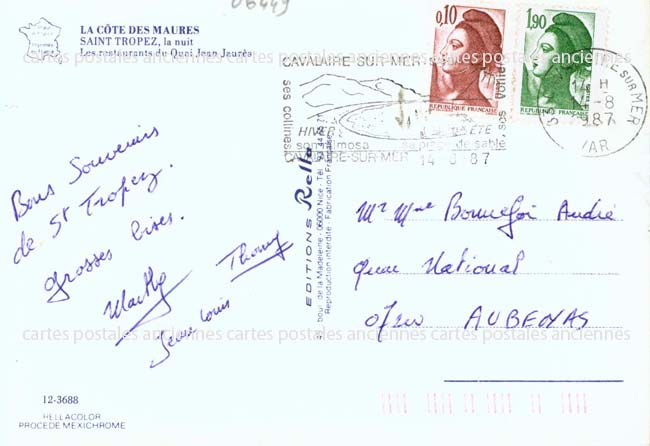 06449
LA CÔTE DES MAURES
SAINT TROPEZ, la nuit
Les restaurants du Quai Jean Jaurès
Bons Souvenirs
de St Tropez.
grosses bises.
Thierry
Jean Louis
12-3688
RELLACOLOR
PROCEDE MEXICHROME
EDITIONS Rella
Reproduction interdite - Fabrication Française
CAVALAIRE-SUR-MER
ses collines
HIVER
ETE
son mimosa
sa plage de sable
CAVALAIRE-SUR-MER 14-8 87
0,10
REPUBLIQUE FRANÇAISE
1,90
REPUBLIQUE FRANÇAISE
SUR MER
14 H
-8
1987
VAR
Mr Mme Bonnefoi André
quai National
07200 AUBENAS
cartes postales anciennes cartes postales anciennes cartes postales anciennes
cartes postales anciennes cartes postales anciennes cartes postales anciennes